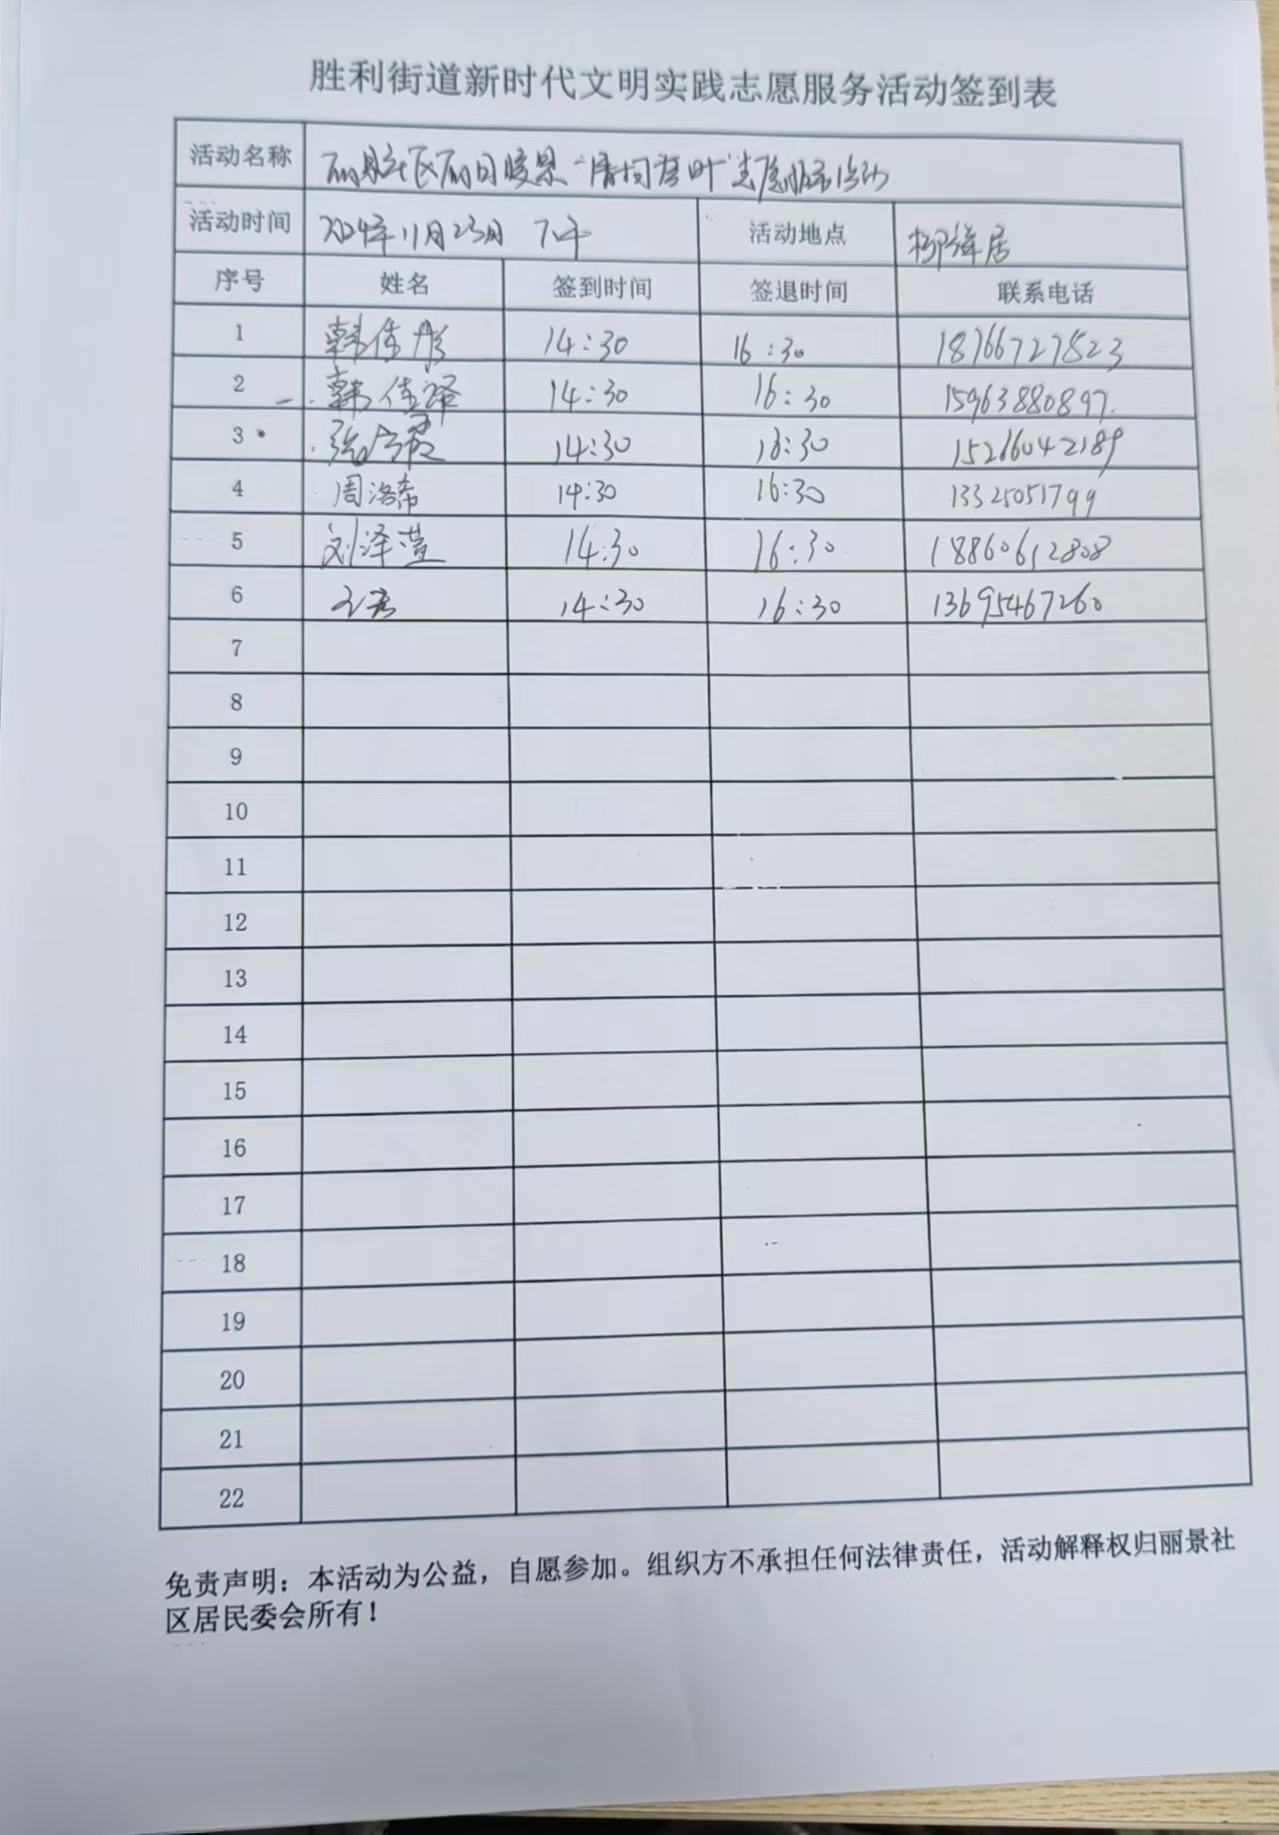 胜利街道新时代文明实践志愿服务活动签到表
活动名称 丽景社区丽日暖景“清扫落叶”志愿服务活动
活动时间 2024年11月23日 下午 活动地点 柳绿居
序号 姓名 签到时间 签退时间 联系电话
1 韩佳彤 14:30 16:30 18766727523
2 韩佳译 14:30 16:30 15963880897
3 14:30 16:30 15266042189
4 周洛希 14:30 16:30 13325051799
5 刘泽萱 14:30 16:30 18860612808
6 14:30 16:30 13695467260
7
8
9
10
11
12
13
14
15
16
17
18
19
20
21
22
免责声明：本活动为公益，自愿参加。组织方不承担任何法律责任，活动解释权归丽景社
区居民委会所有！